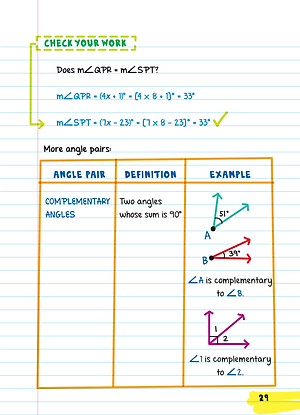 CHECK YOUR WORK
Does m∠QPR = m∠SPT?
m∠QPR = (4x + 1)° = [4 x 8 + 1]° = 33°
m∠SPT = (7x – 23)° = [7 x 8 – 23]° = 33°
More angle pairs:
ANGLE PAIR DEFINITION EXAMPLE
COMPLEMENTARY
ANGLES
Two angles
whose sum is 90°
51°
A
39°
B
∠A is complementary
to ∠B.
1
2
∠1 is complementary
to ∠2.
29